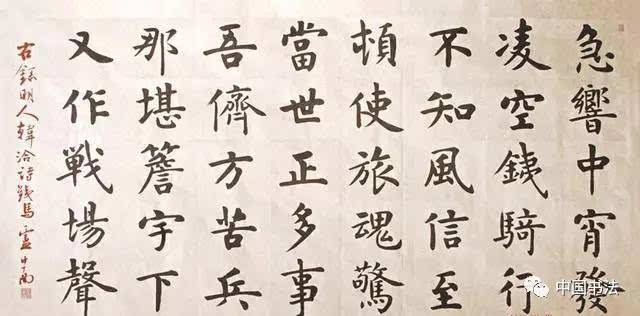 急響中宵發
凌空銕騎行
不知風信至
頓使旅魂驚
當世正多事
吾儕方苦兵
那堪簷宇下
又作戰場聲
右錄明人韓洽詩銕馬 盧中南
中国书法